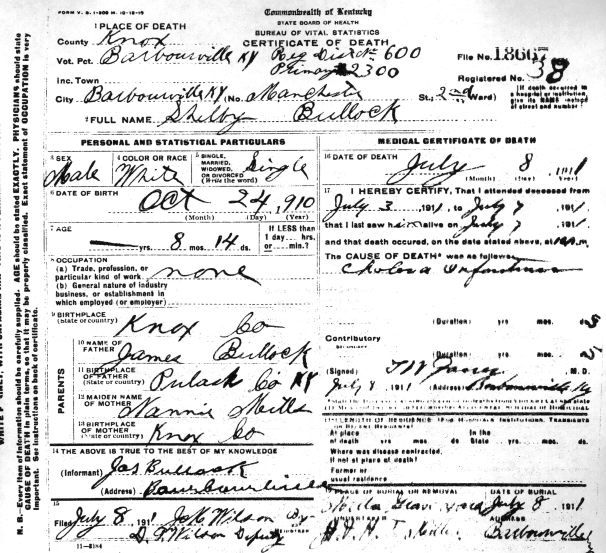 FORM V. S. 1-200 M. 10-12-10
Commonwealth of Kentucky
STATE BOARD OF HEALTH
BUREAU OF VITAL STATISTICS
CERTIFICATE OF DEATH
1 PLACE OF DEATH
County Knox
Vot. Pct. Barbourville KY Reg Dis No 600
Primary 2300
File No.
Registered No. 38
Inc. Town
City Barbourville KY (No. Manchester St.; 2nd Ward)
(If death occurred in a hospital or institution, give its NAME instead of street and number.)
2 FULL NAME Shelby Bullock
PERSONAL AND STATISTICAL PARTICULARS
3 SEX Male
4 COLOR OR RACE White
5 SINGLE, MARRIED, WIDOWED, OR DIVORCED (Write the word) Single
6 DATE OF BIRTH Oct 24, 1910
(Month) (Day) (Year)
7 AGE yrs. 8 mos. 14 ds.
If LESS than 1 day... hrs. or... min.?
8 OCCUPATION
(a) Trade, profession, or particular kind of work none
(b) General nature of industry business, or establishment in which employed (or employer)
9 BIRTHPLACE (State or country) Knox Co
PARENTS
10 NAME OF FATHER James Bullock
11 BIRTHPLACE OF FATHER (State or country) Pulask Co KY
12 MAIDEN NAME OF MOTHER Nannie Mills
13 BIRTHPLACE OF MOTHER (State or country) Knox Co
14 THE ABOVE IS TRUE TO THE BEST OF MY KNOWLEDGE
(Informant) Jas Bullock
(Address)
15
Filed July 8 1911 Wilson By
D. Wilson Deputy
11-3184
MEDICAL CERTIFICATE OF DEATH
16 DATE OF DEATH July 8 1911
(Month) (Day) (Year)
17 I HEREBY CERTIFY, That I attended deceased from
July 3, 1911 to July 7, 1911
that I last saw him alive on July 7, 1911
and that death occured, on the date stated above, at m.
The CAUSE OF DEATH* was as follows:
Cholera Infantum
(Duration) yrs mos. 5
Contributory
(Duration) yrs mos.
(Signed) M. D.
July 8 1911 (Address) Barbourville Ky
At place of death yrs mos. ds. State yrs mos. ds.
In the
Where was disease contracted, if not at place of death?
Former or usual residence
19 PLACE OF BURIAL OR REMOVAL
DATE OF BURIAL July 8 1911
UNDERTAKER
ADDRESS Barbourville
N. B.—Every item of information should be carefully supplied. AGE should be stated EXACTLY. PHYSICIANS should state
CAUSE OF DEATH in plain terms, so that it may be properly classified. Exact statement of OCCUPATION is very
important. See instructions on back of certificate.